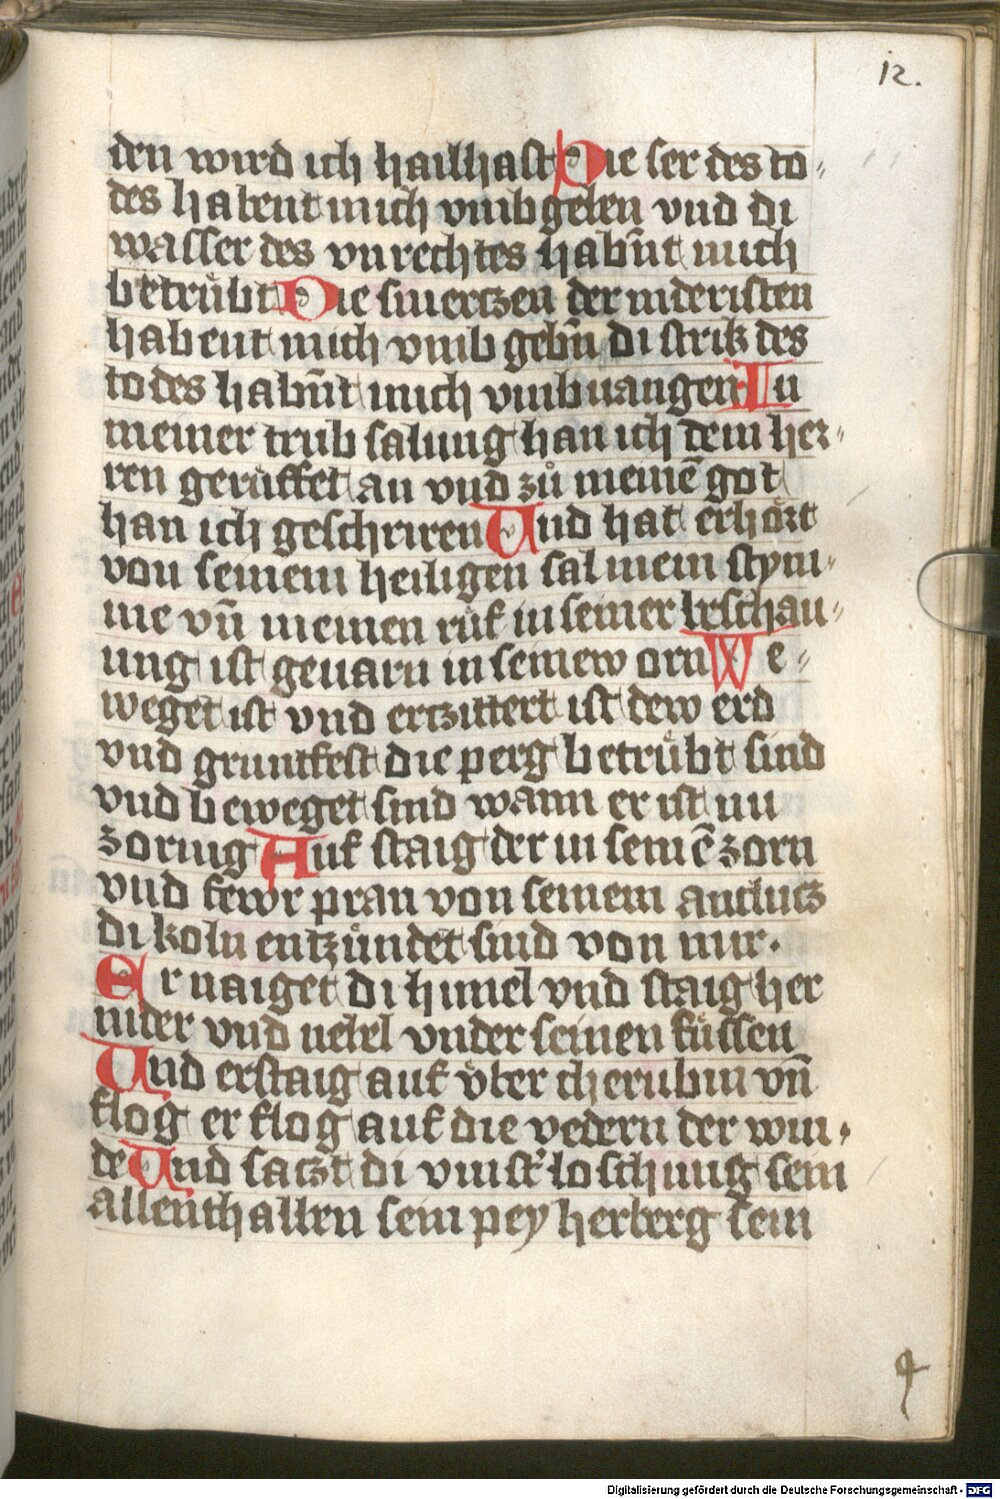 12.
den wird ich hailhaft Die ser des to⸗
des habent mich vmbgeben vnd di
wasser des vnrechtes habn̄t mich
betrübt Die smertzen der nideristen
habent mich vmb gebn̄ di strik des
todes habn̄t mich vmbuangen In
meiner trub salung han ich dem her⸗
ren gerüffet an vnd zů meinē got
han ich geschriren Und hat erhört
von seinem heiligen sal mein stym⸗
me vn̄ meinen rüf in seiner beschau⸗
ung ist geuarn in seinew orn We⸗
weget ist vnd erzittert ist dew erd
vnd gruntfest die perg betrübt sind
vnd beweget sind wann er ist im
zornig Auf staig der in seinē zorn
vnd fewr pran von seinem antlutz
di koln entzündet sind von mir.
Er naiget di himel vnd staig her
nider vnd nebel vnder seinen füssen
Und er staig auf vber cherubin vn̄
flog er flog auf die vedern der win⸗
de Und satzt di vinst' loschnung sein
allenthallen sein pey herberg sein
Digitalisierung gefördert durch die Deutsche Forschungsgemeinschaft - DFG